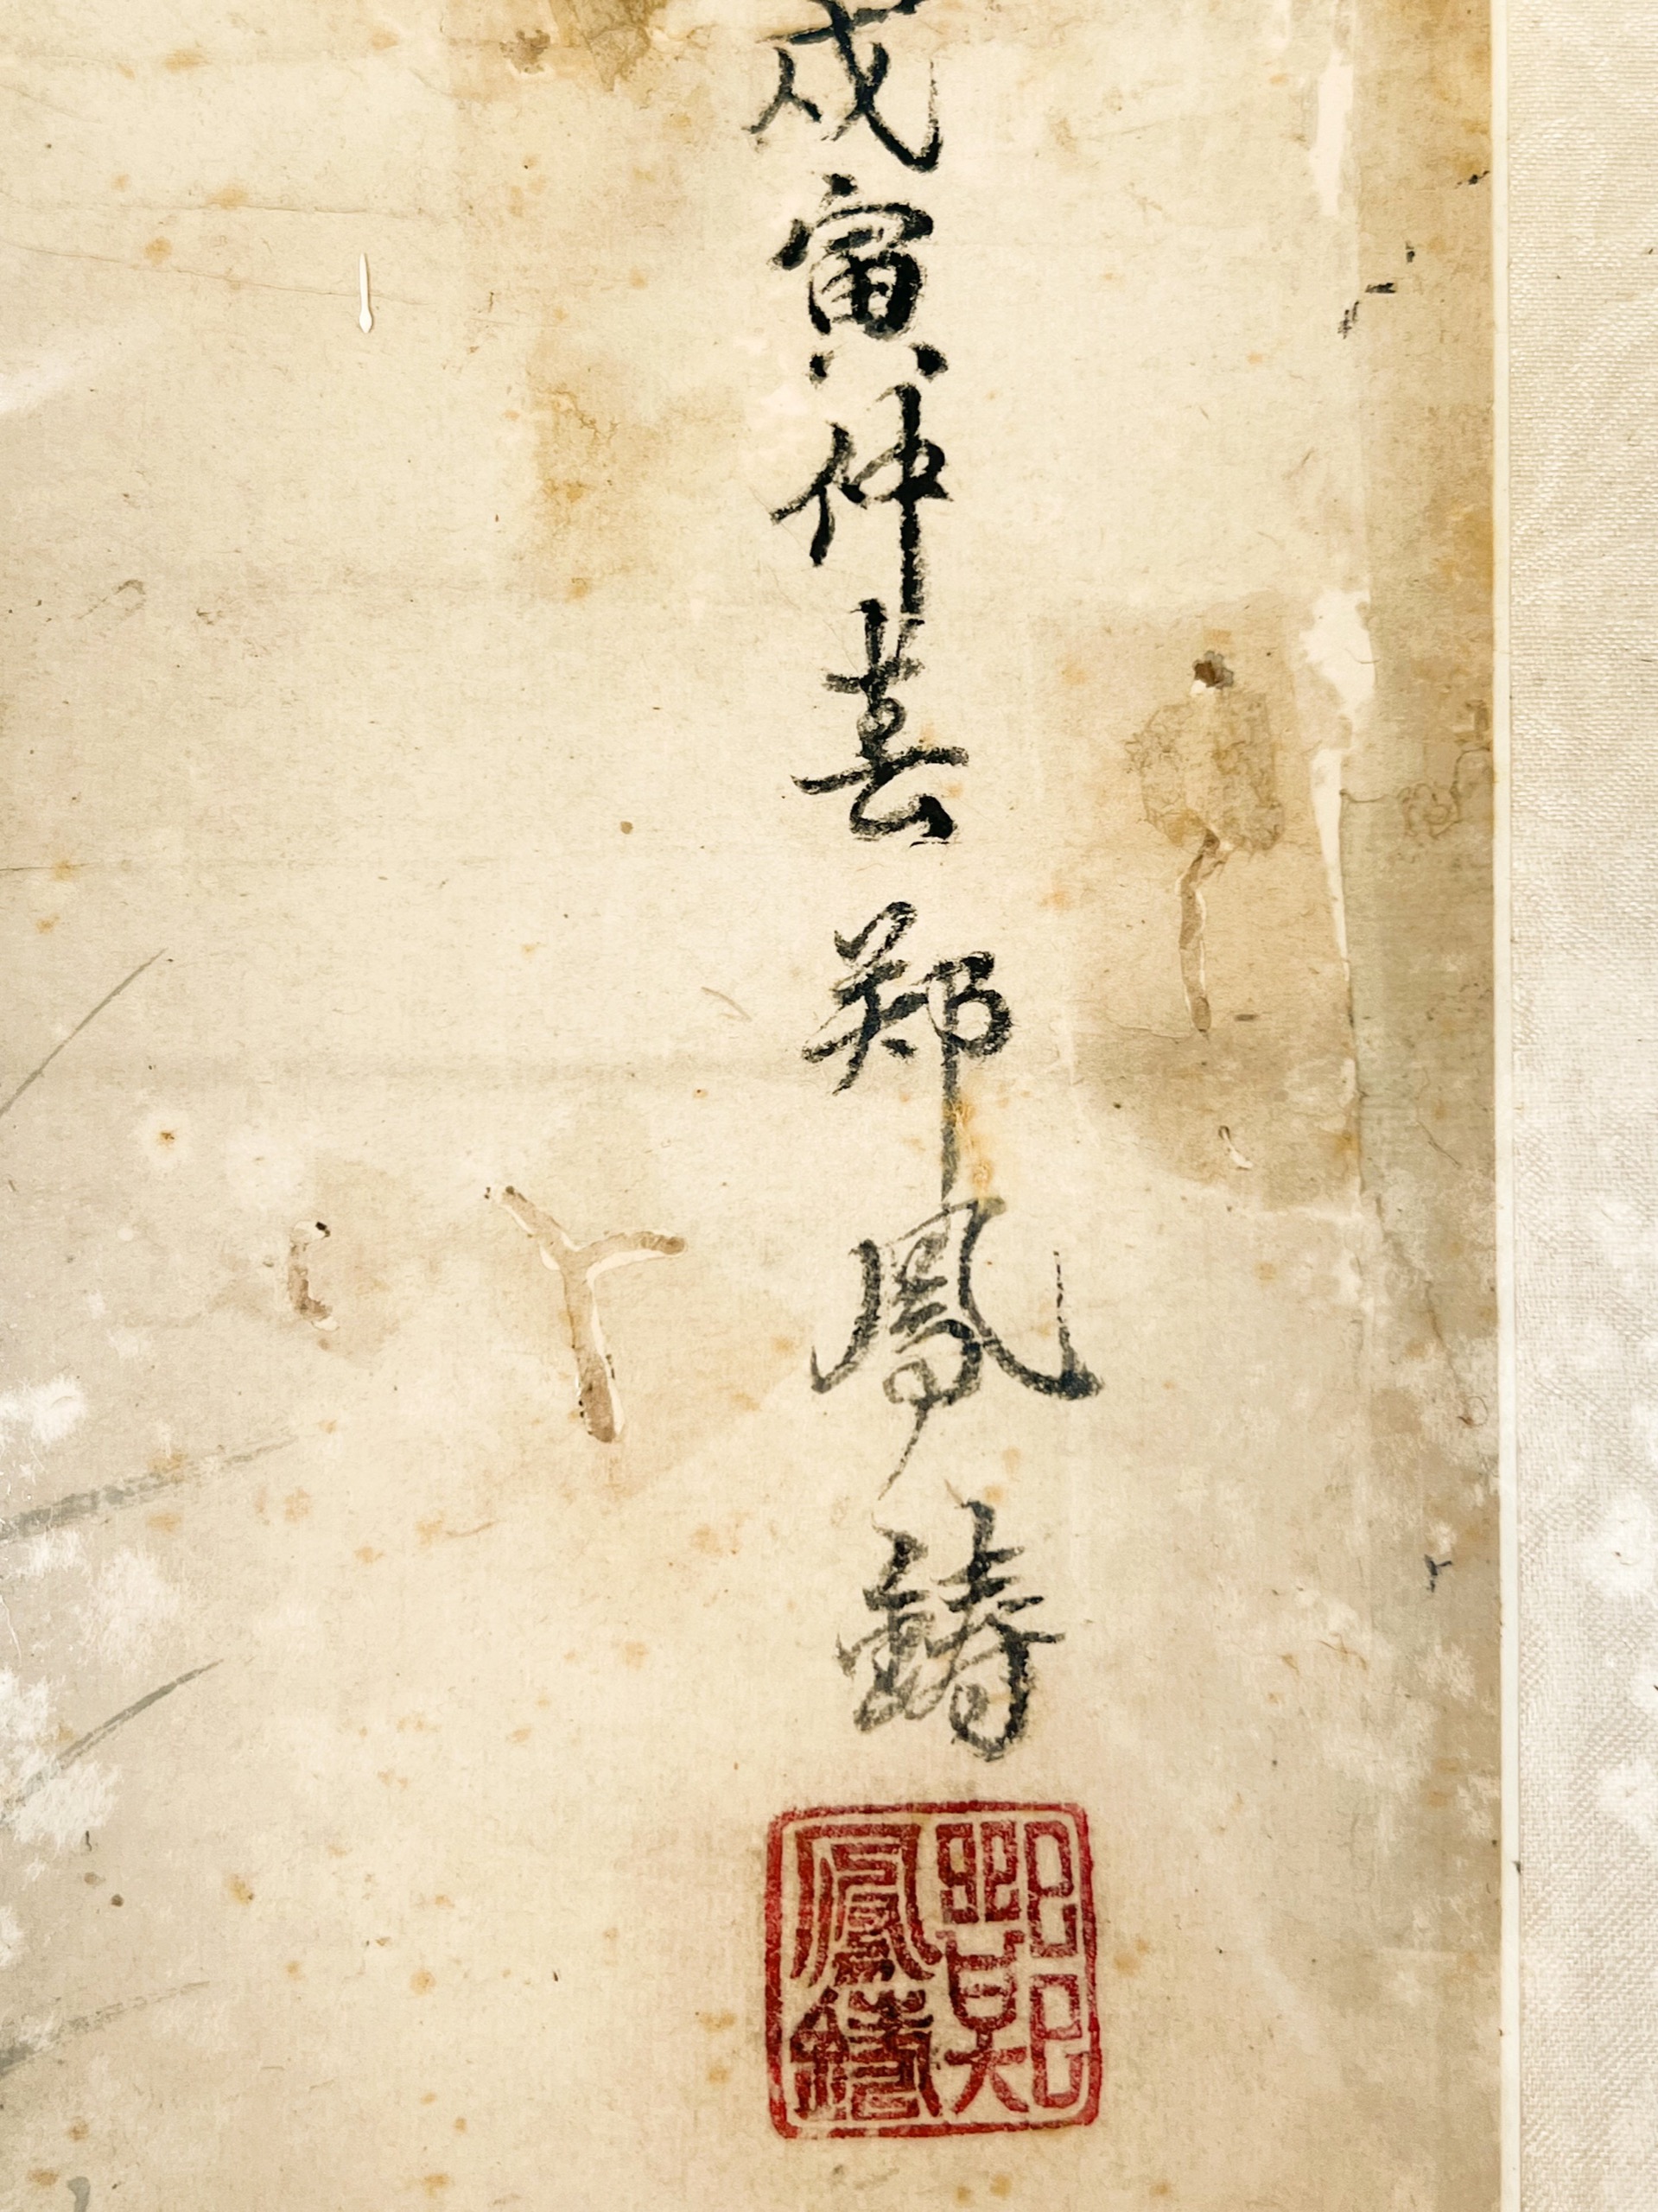 戊寅仲春 鄭鳳鑄
鄭
鳳鑄